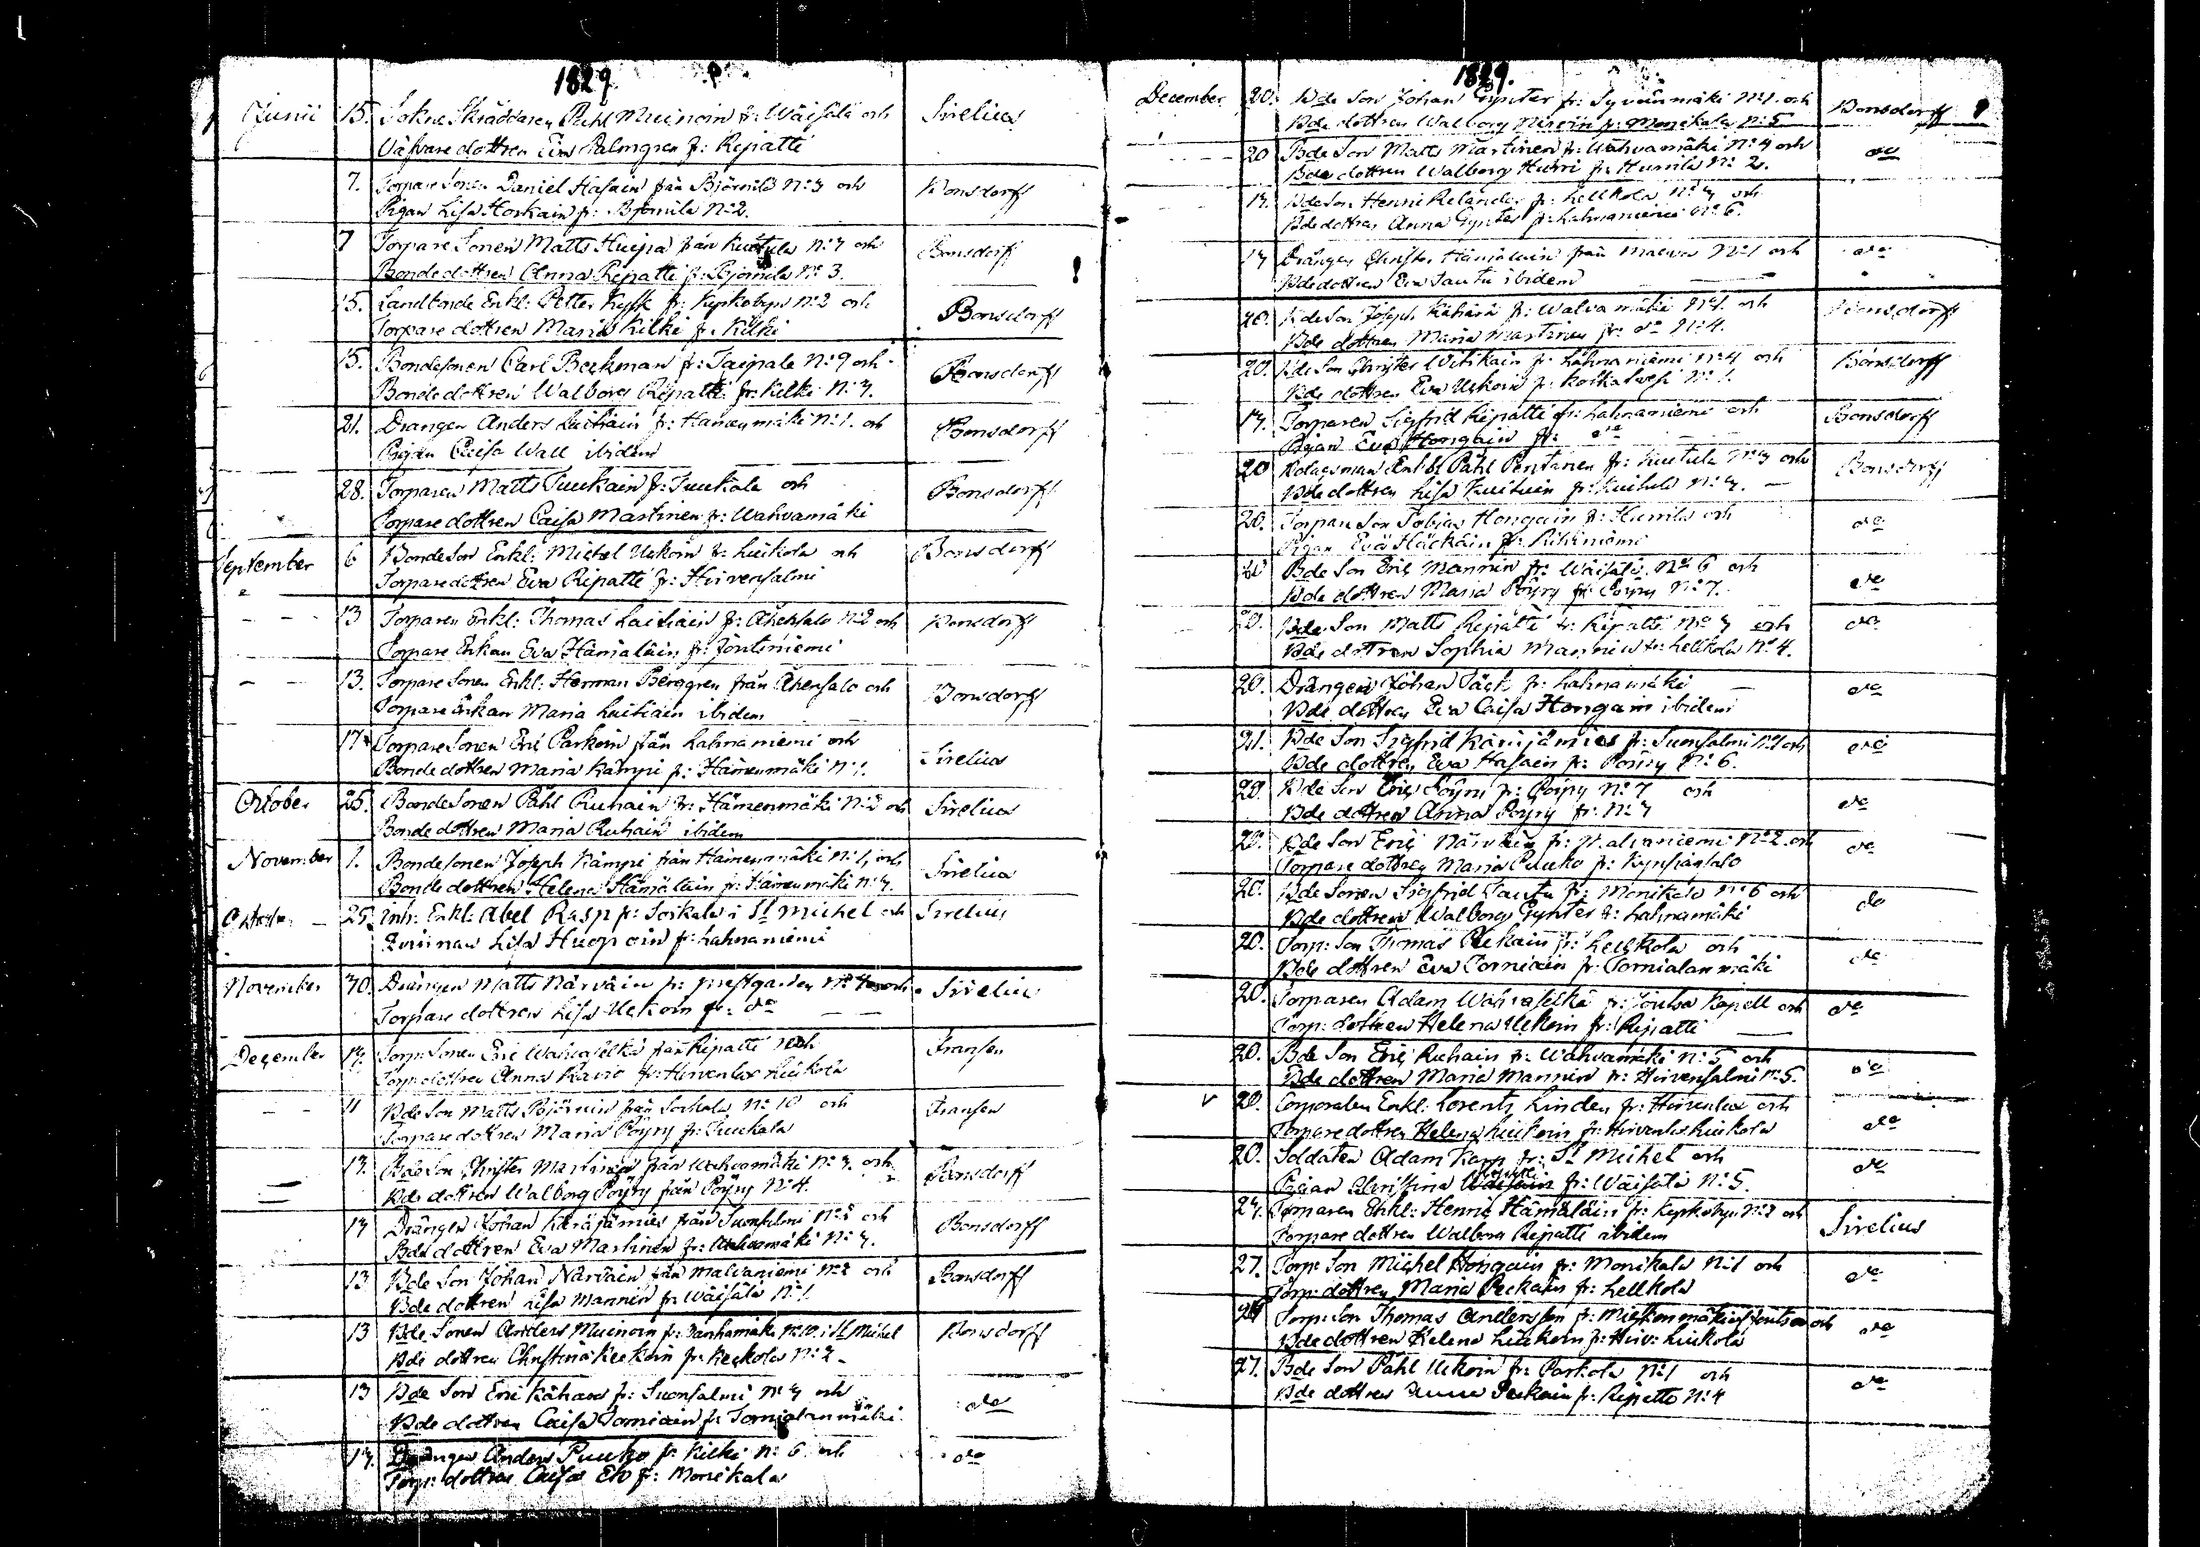 1829
Junii 15. Sokne Skräddaren Påhl Muinoin fr: Wäisälä och Sirelius
Väfvare dottren Eva Palmgren fr: Ripatti
7. Torpare Sonen Daniel Hasain från Björnilä N:3 och Bonsdorff
Pigan Lisa Hoskain fr: Björnilä N:2.
7 Torpare Sonen Matts Huipa från Kuitula N:7 och Bonsdorff
Bonde dottren Anna Ripatti fr: Björnilä N:3.
15. Landbonde Enkl: Petter Kyssk fr: Kyrkobyn N:2 och Bonsdorff
Torpare dottren Maria Kilki fr: Kilki
15. Bondesonen Carl Beckman fr: Taipale N:9 och Bonsdorff
Bonde dottren Walborg Ripatti fr: Kilki N:7.
21. Drängen Anders Luikiain fr: Hämenmäki N:1. och Bonsdorff
Pigan Caisa Wall ibidem
28. Torparen Matts Tuukain fr: Tuukala och Bonsdorff
Torpare dottren Caisa Martinen fr: Wahvamäki
September 6 Bonde Son Enkl: Michel Uekoin fr: Luikola och Bonsdorff
Torpare dottren Eva Ripatti fr: Hirvensalmi
13 Torparen Enkl: Thomas Laitiain fr: Ahensalo N:2 och Bonsdorff
Torpare Enkan Eva Hämäläin fr: Joutiniemi
13. Torpare Sonen Enkl: Herman Berggren från Ahensalo och Bonsdorff
Torpare enkan Maria Luitiain ibidem
17 Torpare Sonen Eric Parkoin från Lahnaniemi och Sirelius
Bonde dottren Maria Kämpi fr: Hämenmäki N:1.
October 25. Bonde Sonen Påhl Ruhain fr: Hämenmäki N:2 och Sirelius
Bonde dottren Maria Ruhain ibidem
November 1. Bonde Sonen Joseph Kämpi från Hämenmäki N:1, och Sirelius
Bonde dottren Helena Hämäläin fr: Hämenmäki N:7.
October 25. Inh: Enkl: Abel Rasp fr: Sorkala i St Michel och Sirelius
Qvinnan Lisa Huopoin fr: Lahnaniemi
November 30. Drängen Matts Närväin fr: Prestgården och Sirelius
Torpare dottren Lisa Uekoin fr: do
December 17. Torp: Sonen Eric Wahvaselkä från Ripatti och Fransen
Torp: dottren Anna Ravio fr: Hirvenlax Luikola
11 Bde Son Matts Björnin från Sorkala N:10 och Fransen
Torpare dottren Maria Pöyry fr: Tuukala
13. Bde Son Christer Martinen från Wahvamäki N:3. och Bonsdorff
Bde dottren Walborg Pöyry från Pöyry N:4.
17 Drängen Johan Käräjämies från Suonsalmi N:5 och Bonsdorff
Bde dottren Eva Martinen fr: Wahvamäki N:7.
13 Bde Son Johan Närväin från Malvaniemi N:2 och Bonsdorff
Bde dottren Lisa Mannin fr: Wäisälä N:1.
13 Bde Sonen Anders Muinoin fr: N:10 i St Michel Bonsdorff
Bde dottren Christina Keckoin fr: Keckola N:2
13 Bde Son Eric Kähärä fr: Suonsalmi N:7 och do
Bde dottren Caisa Torniain fr: Tornialanmäki
17. Drängen Anders Puuko fr: Kilki N:6 och do
Torp: dottren Caisa Elo fr: Monikala
1829.
December 20. Bde Son Johan Gynter fr: Syvänmäki N:1. och Bonsdorff
Bde dottren Walborg fr: Monikala N:5
20 Bde Son Matts Martinen fr: Wahvamäki N:4 och do
Bde dottren Walborg Hurri fr: Hurrila N:2.
17. Bde Son Henric Relander fr: Lellkola N:7 och
Bde dottren Anna Gynter fr: Lahnaniemi N:6.
17 Drängen Christer Hämäläin från N:1 och do
Bde dottren Eva Tautu ibidem
20. Bde Son Joseph Kähärä fr: Walvamäki N:1. och Bonsdorff
Bde dottren Maria Martinen fr: do N:4.
20. Bde Son Christer Witikain fr: Lahnaniemi N:4 och Bonsdorff
Bde dottren Eva Uekoin fr: N:1.
17. Torparen Sigfrid Ripatti fr: Lahnaniemi och Bonsdorff
Pigan Eva Hongain fr: do
20 Bolagsman Enkl: Påhl Pentanen fr: Kuitula N:3 och Bonsdorff
Bde dottren Lisa Kuituin fr: Kuitula N:7.
20. Torpare Son Tobias Hongain fr: Hurrila och do
Pigan Eva Häckäin fr:
20 Bde Son Eric Mannin fr: Wäisälä N:6 och do
Bde dottren Maria Pöyry fr: Pöyry N:7.
20. Bde Son Matts Ripatti fr: Ripatti N:3 och do
Bde dottren Sophia Mannin fr: Lellkola N:4.
20. Drängen Johan Täck fr: Lahnamäki do
Bde dottren Eva Caisa Hongain ibidem
21. Bde Son Sigfrid Käräjämies fr: Suonsalmi N:4 och do
Bde dottren Eva Hasain fr: Pöyry N:6.
20. Bde Son Eric Pöyry fr: Pöyry N:7 och do
Bde dottren Anna Pöyry fr: N:7
20. Bde Son Eric Närväin fr: Malvaniemi N:2. och do
Torpare dottren Maria Puuko fr: Kynsiänsalo
20. Bde Sonen Sigfrid Tautu fr: Monikala N:6 och do
Bde dottren Walborg Gynter fr: Lahnamäki
20. Torp: Son Thomas Peckain fr: Lellkola och do
Bde dottren Eva Torniain fr: Tornialanmäki
20. Torparen Adam Wahvaselkä fr: Joutsa Kapell och do
Torp: dottren Helena Uekoin fr: Ripatti
20. Bde Son Eric Ruhain fr: Wahvamäki N:5 och do
Bde dottren Maria Mannin fr: Hirvensalmi N:5.
20. Corporalen Enkl: Lorentz Linden fr: Hirvenlax och do
Torpare dottren Helena Luikoin fr: Hirvenlax Luikola
20. Soldaten Adam Karp fr: St Michel och do
Pigan Christina fr: Wäisälä N:5.
27. Torparen Enkl: Henric Hämäläin fr: Kyrkobyn N:2 och Sirelius
Torpare dottren Walborg Ripatti ibidem
27. Torp: Son Michel Hongain fr: Monikala N:1 och do
Torp: dottren Maria Peckain fr: Lellkola
27 Torp: Son Thomas Andersson fr: Mieskonmäki och do
Bde dottren Helena Luikoin fr: Hirv: Luikola
27. Bde Son Påhl Uekoin fr: Parkola N:1 och do
Bde dottren Anna Peckain fr: Ripatti N:4